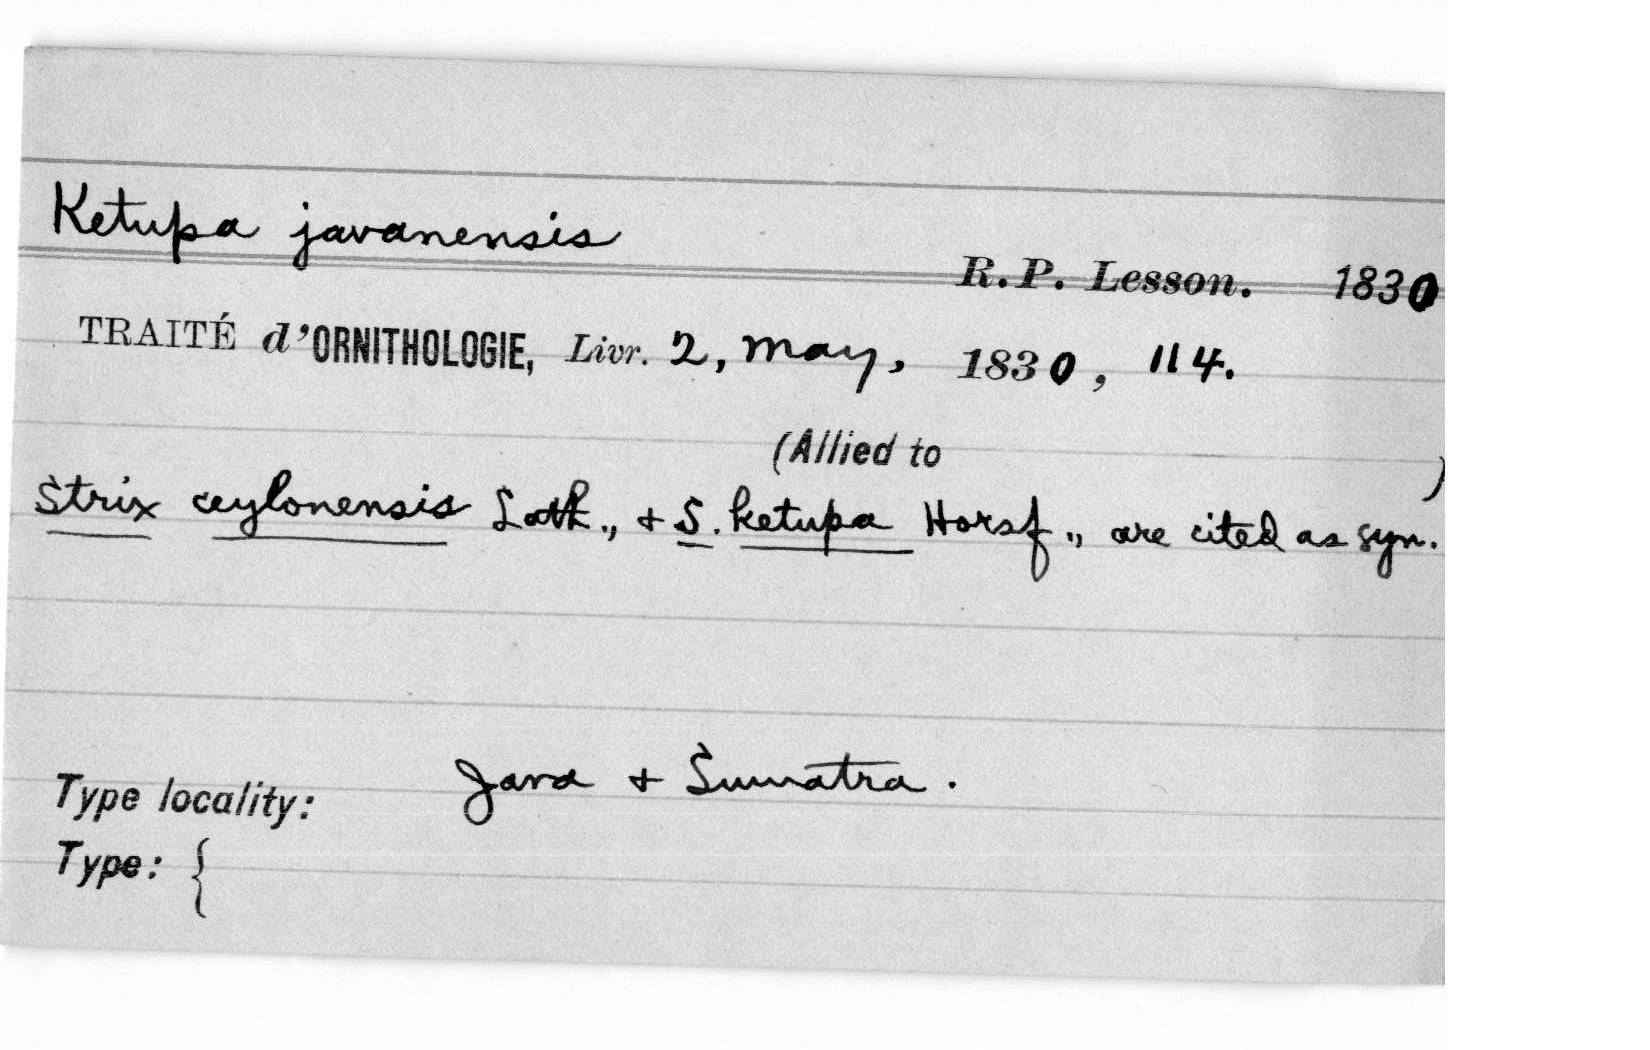 Ketupa javanensis
R.P. Lesson. 1830
TRAITÉ d'ORNITHOLOGIE, Livr. 2, May, 1830, 114.
(Allied to )
Strix ceylonensis Lath., + S. ketupa Horsf., are cited as syn.
Type locality: Java + Sumatra.
Type: {